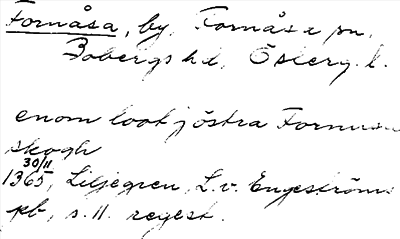 Fornåsa, by, Fornåsa sn,
Bobergs hd, Österg. l.
enom loot j östra Fornusa
skogh
30/11
1365, Liljegren, L. v. Engeströms
pb, s. 11. regest.